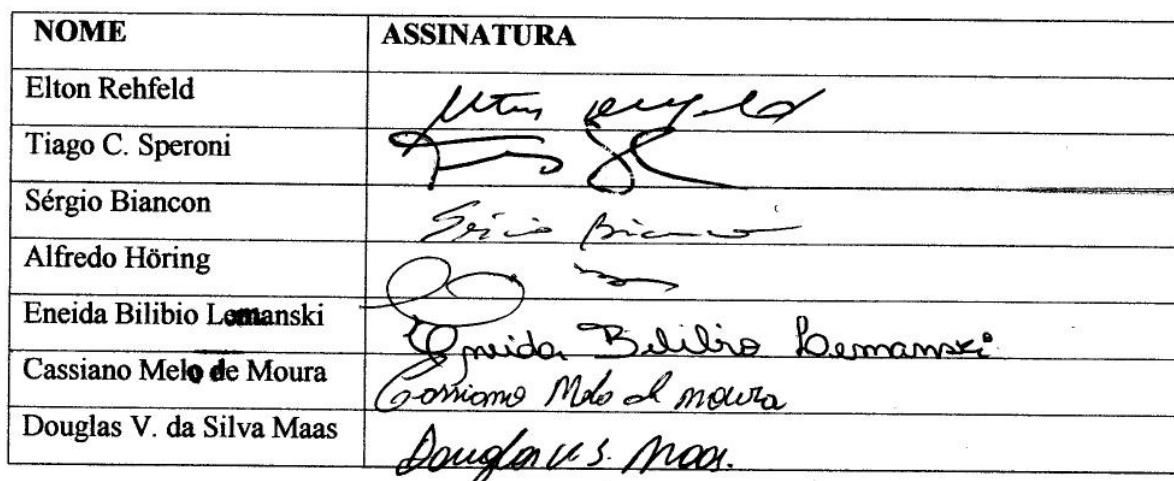 NOME ASSINATURA
Elton Rehfeld
Tiago C. Speroni
Sérgio Biancon
Alfredo Höring
Eneida Bilibio Lemanski Eneida Bilibio Lemanski
Cassiano Melo de Moura Cassiano Melo de Moura
Douglas V. da Silva Maas Douglas V. S. Maas.